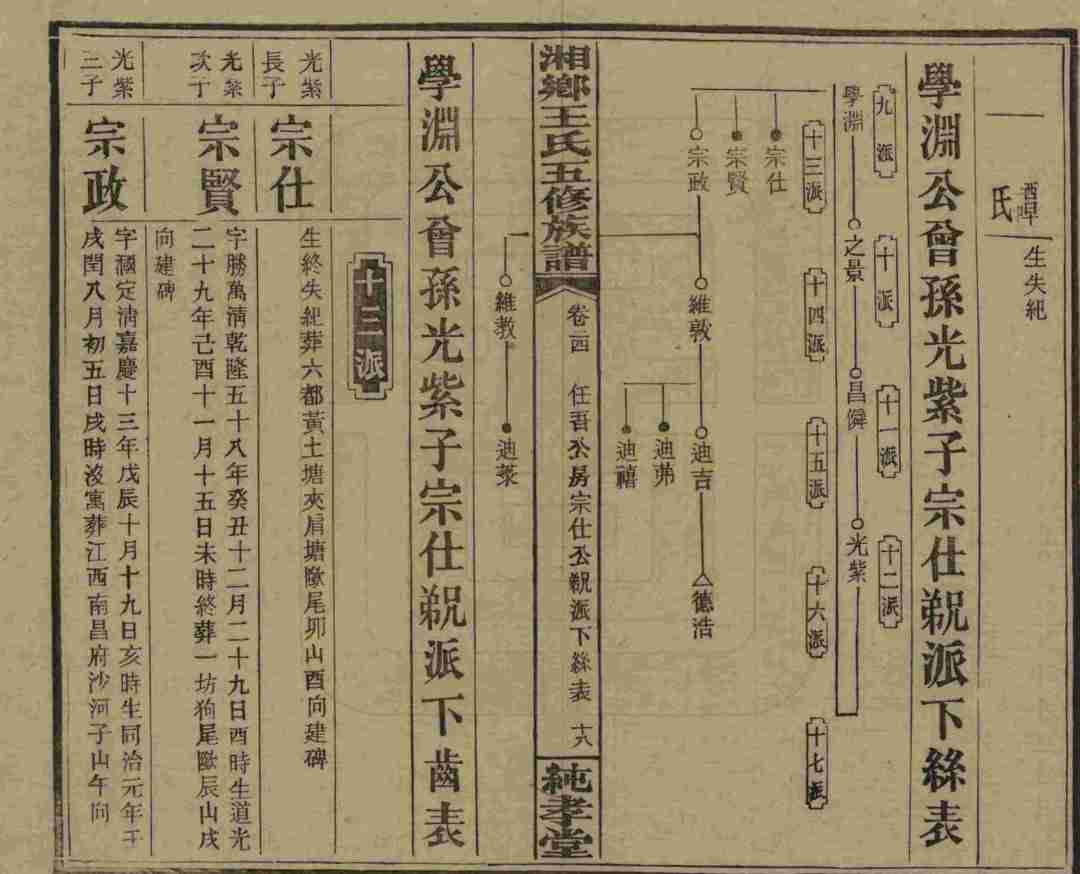 氏
酉
生失紀
學淵公曾孫光紫子宗仕派下絲表
九派
十派
十一派
十二派
學淵
之景
昌僯
光紫
十三派
十四派
十五派
十六派
十七派
宗仕
宗賢
宗政
維敦
維教
迪吉
迪弟
迪禧
迪菉
德浩
湘鄉王氏五修族譜
卷二四 任吾公房宗仕公派下絲表 十八
純孝堂
學淵公曾孫光紫子宗仕派下齒表
十三派
光紫長子
宗仕
生終失紀葬六都黃土塘夾肩塘歐尾卯山酉向建碑
光紫次子
宗賢
字勝萬清乾隆五十八年癸丑十二月二十九日酉時生道光
二十九年己酉十一月十五日未時終葬一坊狗尾歐辰山戌
向建碑
光紫三子
宗政
字國定清嘉慶十三年戊辰十月十九日亥時生同治元年壬
戌閏八月初五日戌時沒寓葬江西南昌府沙河子山午向